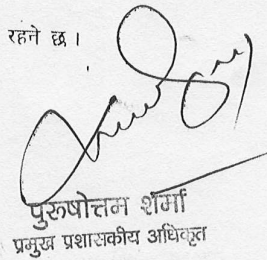 रहने छ।
पुरुषोत्तम शर्मा
प्रमुख प्रशासकीय अधिकृत